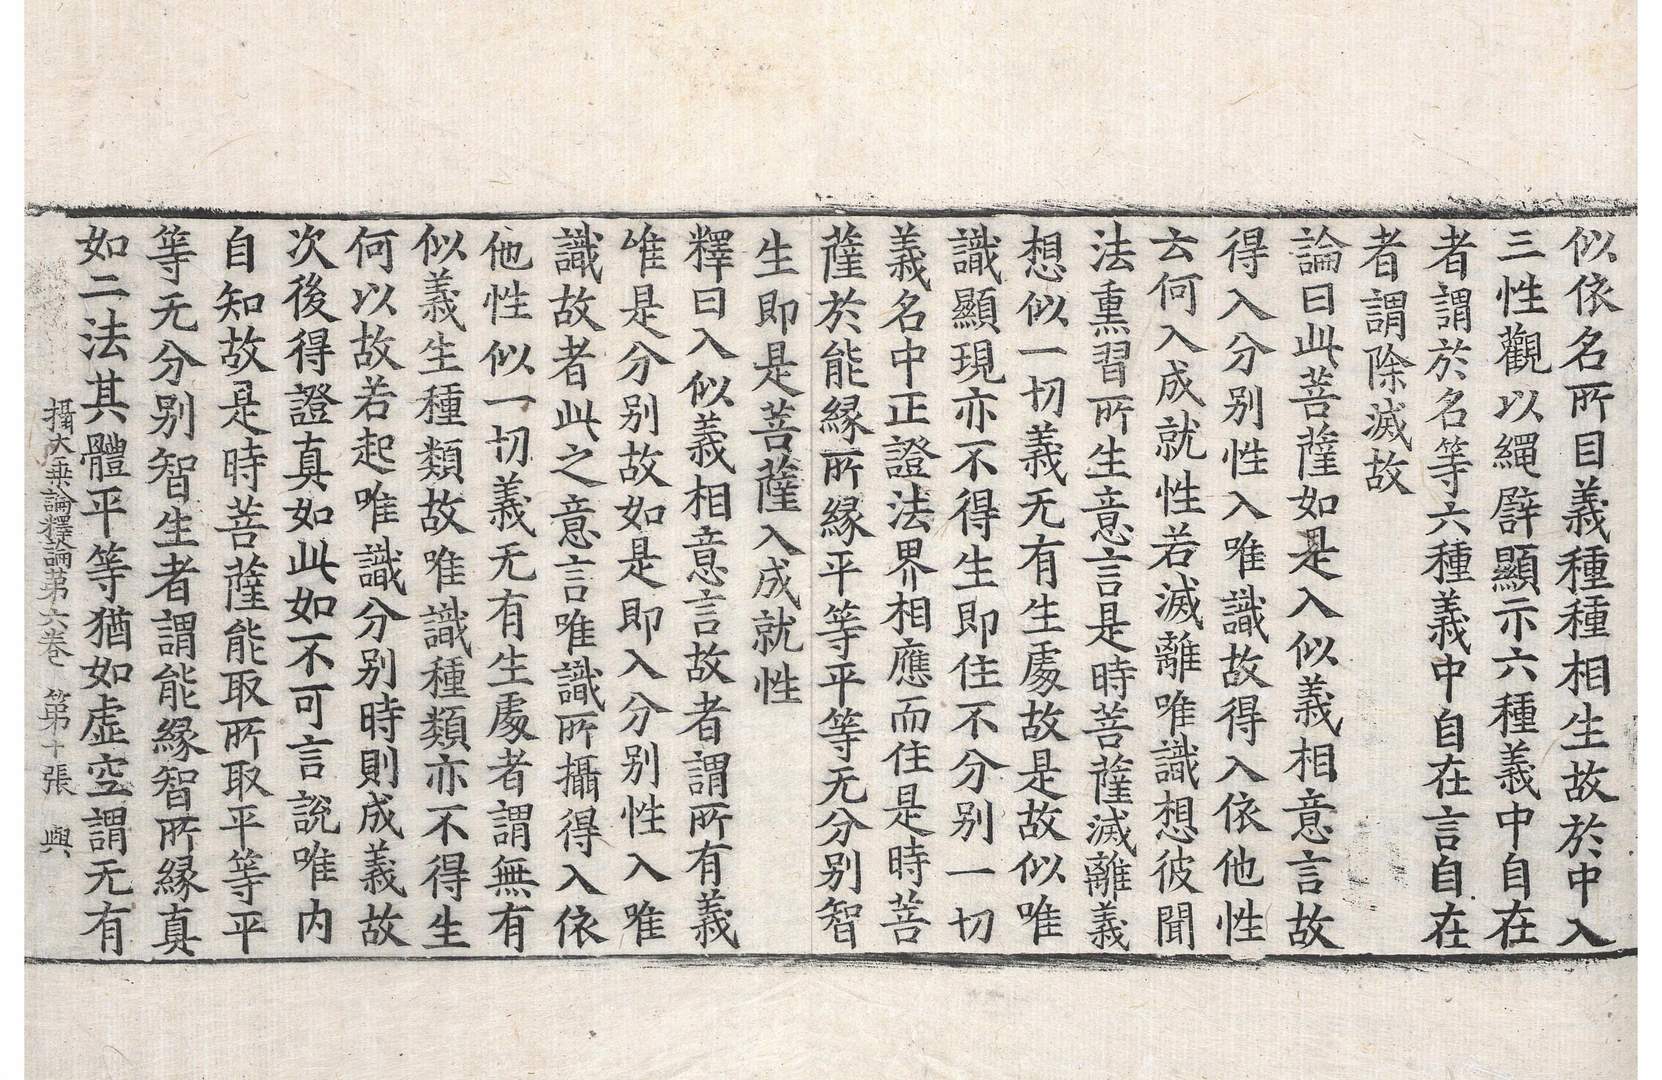 似依名所目義種種相生故於中入
三性觀以繩譬顯示六種義中自在
者謂於名等六種義中自在言自在
者謂除滅故
論曰此菩薩如是入似義相意言故
得入分别性入唯識故得入依他性
云何入成就性若滅離唯識想彼聞
法熏習所生意言是時菩薩滅離義
想似一切義无有生處故是故似唯
識顯現亦不得生即住不分别一切
義名中正證法界相應而住是時菩
薩於能縁所縁平等平等无分别智
生即是菩薩入成就性
釋曰入似義相意言故者謂所有義
唯是分别故如是即入分别性入唯
識故者此之意言唯識所攝得入依
他性似一切義无有生處者謂無有
似義生種類故唯識種類亦不得生
何以故若起唯識分别時則成義故
次後得證真如此如不可言説唯内
自知故是時菩薩能取所取平等平
等无分别智生者謂能縁智所縁真
如二法其體平等猶如虚空謂无有
攝大乗論釋論第六卷 第十張 與